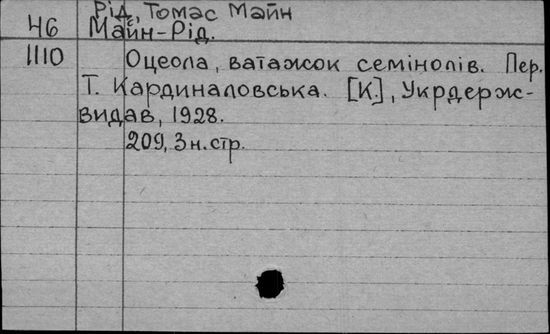 Рід, Томас Майн
46 Майн-Рід.
1110 Оцеола, ватажок семінолів. Пер.
Т. Кардиналовська. [К.], Укрдерж-
видав, 1928.
209, 3 н. стр.